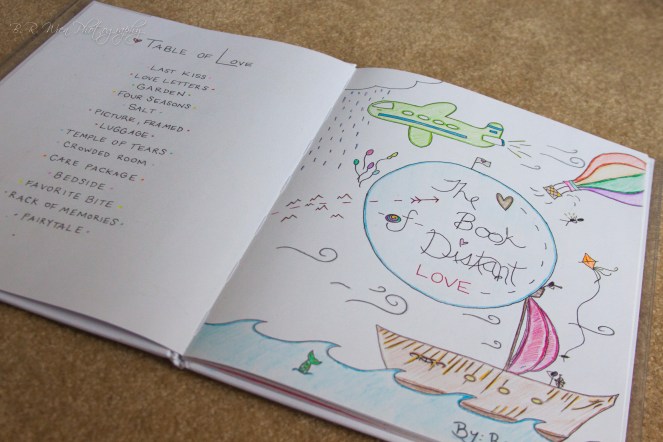 B. R. Wen Photography
TABLE OF LOVE
LAST KISS
LOVE LETTERS
GARDEN
FOUR SEASONS
SALT
PICTURE, FRAMED
LUGGAGE
TEMPLE OF TEARS
CROWDED ROOM
CARE PACKAGE
BEDSIDE
FAVORITE BITE
RACK OF MEMORIES
FAIRYTALE
The
Book
of
Distant
LOVE
By: R